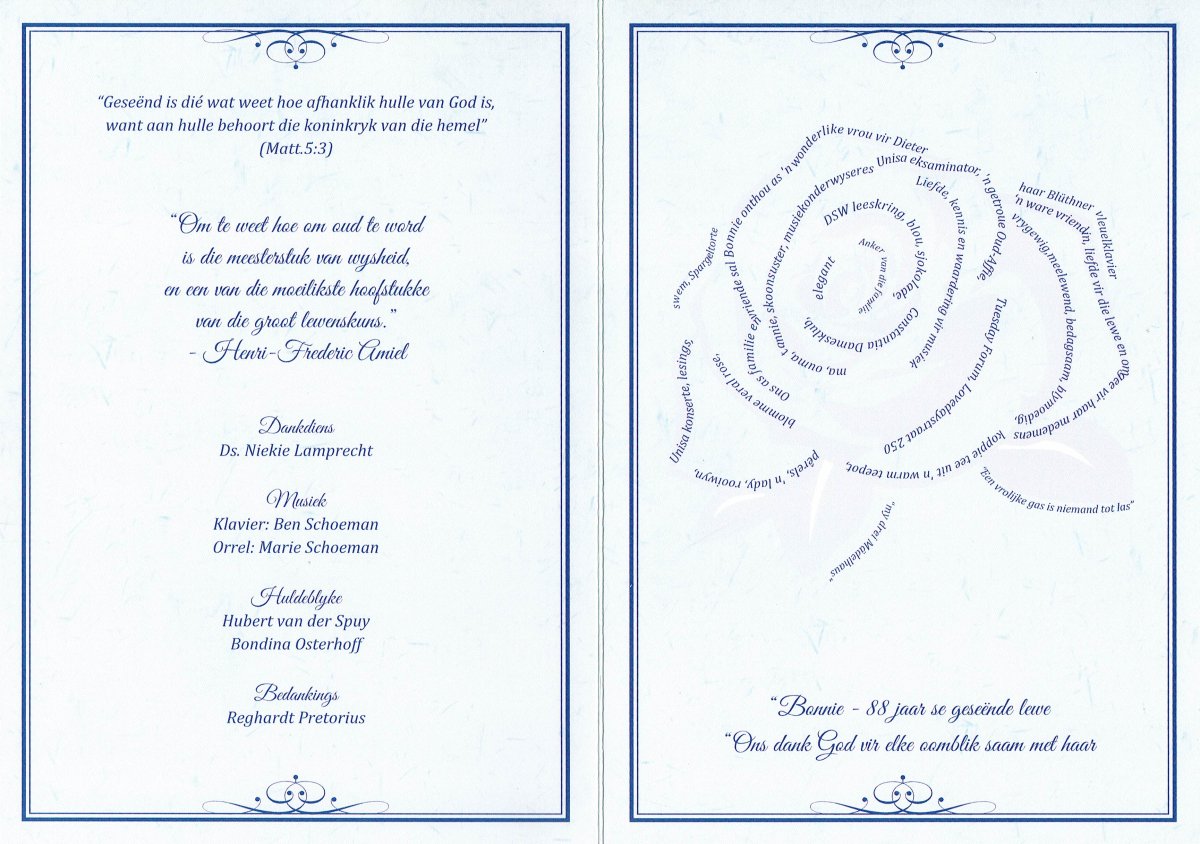 “Geseënd is dié wat weet hoe afhanklik hulle van God is,
want aan hulle behoort die koninkryk van die hemel”
(Matt.5:3)
“Om te weet hoe om oud te word
is die meesterstuk van wysheid,
en een van die moeilikste hoofstukke
van die groot lewenskuns.”
- Henri-Frederic Amiel
Dankdiens
Ds. Niekie Lamprecht
Musiek
Klavier: Ben Schoeman
Orrel: Marie Schoeman
Huldeblyke
Hubert van der Spuy
Bondina Osterhoff
Bedankings
Reghardt Pretorius
Ons as familie en vriende sal Bonnie onthou as 'n wonderlike vrou vir Dieter
ma, ouma, tannie, skoonsuster, musiekonderwyseres Unisa eksaminator, 'n getroue Oud-Affie,
Liefde, kennis en waardering vir musiek
DSW leeskring, blou, sjokolade,
Constantia Damesklub,
elegant
Anker van die familie
Tuesday Forum, Lovedaystraat 250
haar Blüthner vleuelklavier
'n ware vriendin, liefde vir die lewe en omgee vir haar medemens
vrygewig,meelewend, bedagsaam, blymoedig,
swem, Spargeltorte
Unisa konserte, lesings,
blomme veral rose,
pêrels, 'n lady, rooiwyn,
koppie tee uit 'n warm teepot,
“Een vrolijke gas is niemand tot las”
“ny drei Mädelhaus”
“Bonnie - 88 jaar se geseënde lewe
“Ons dank God vir elke oomblik saam met haar